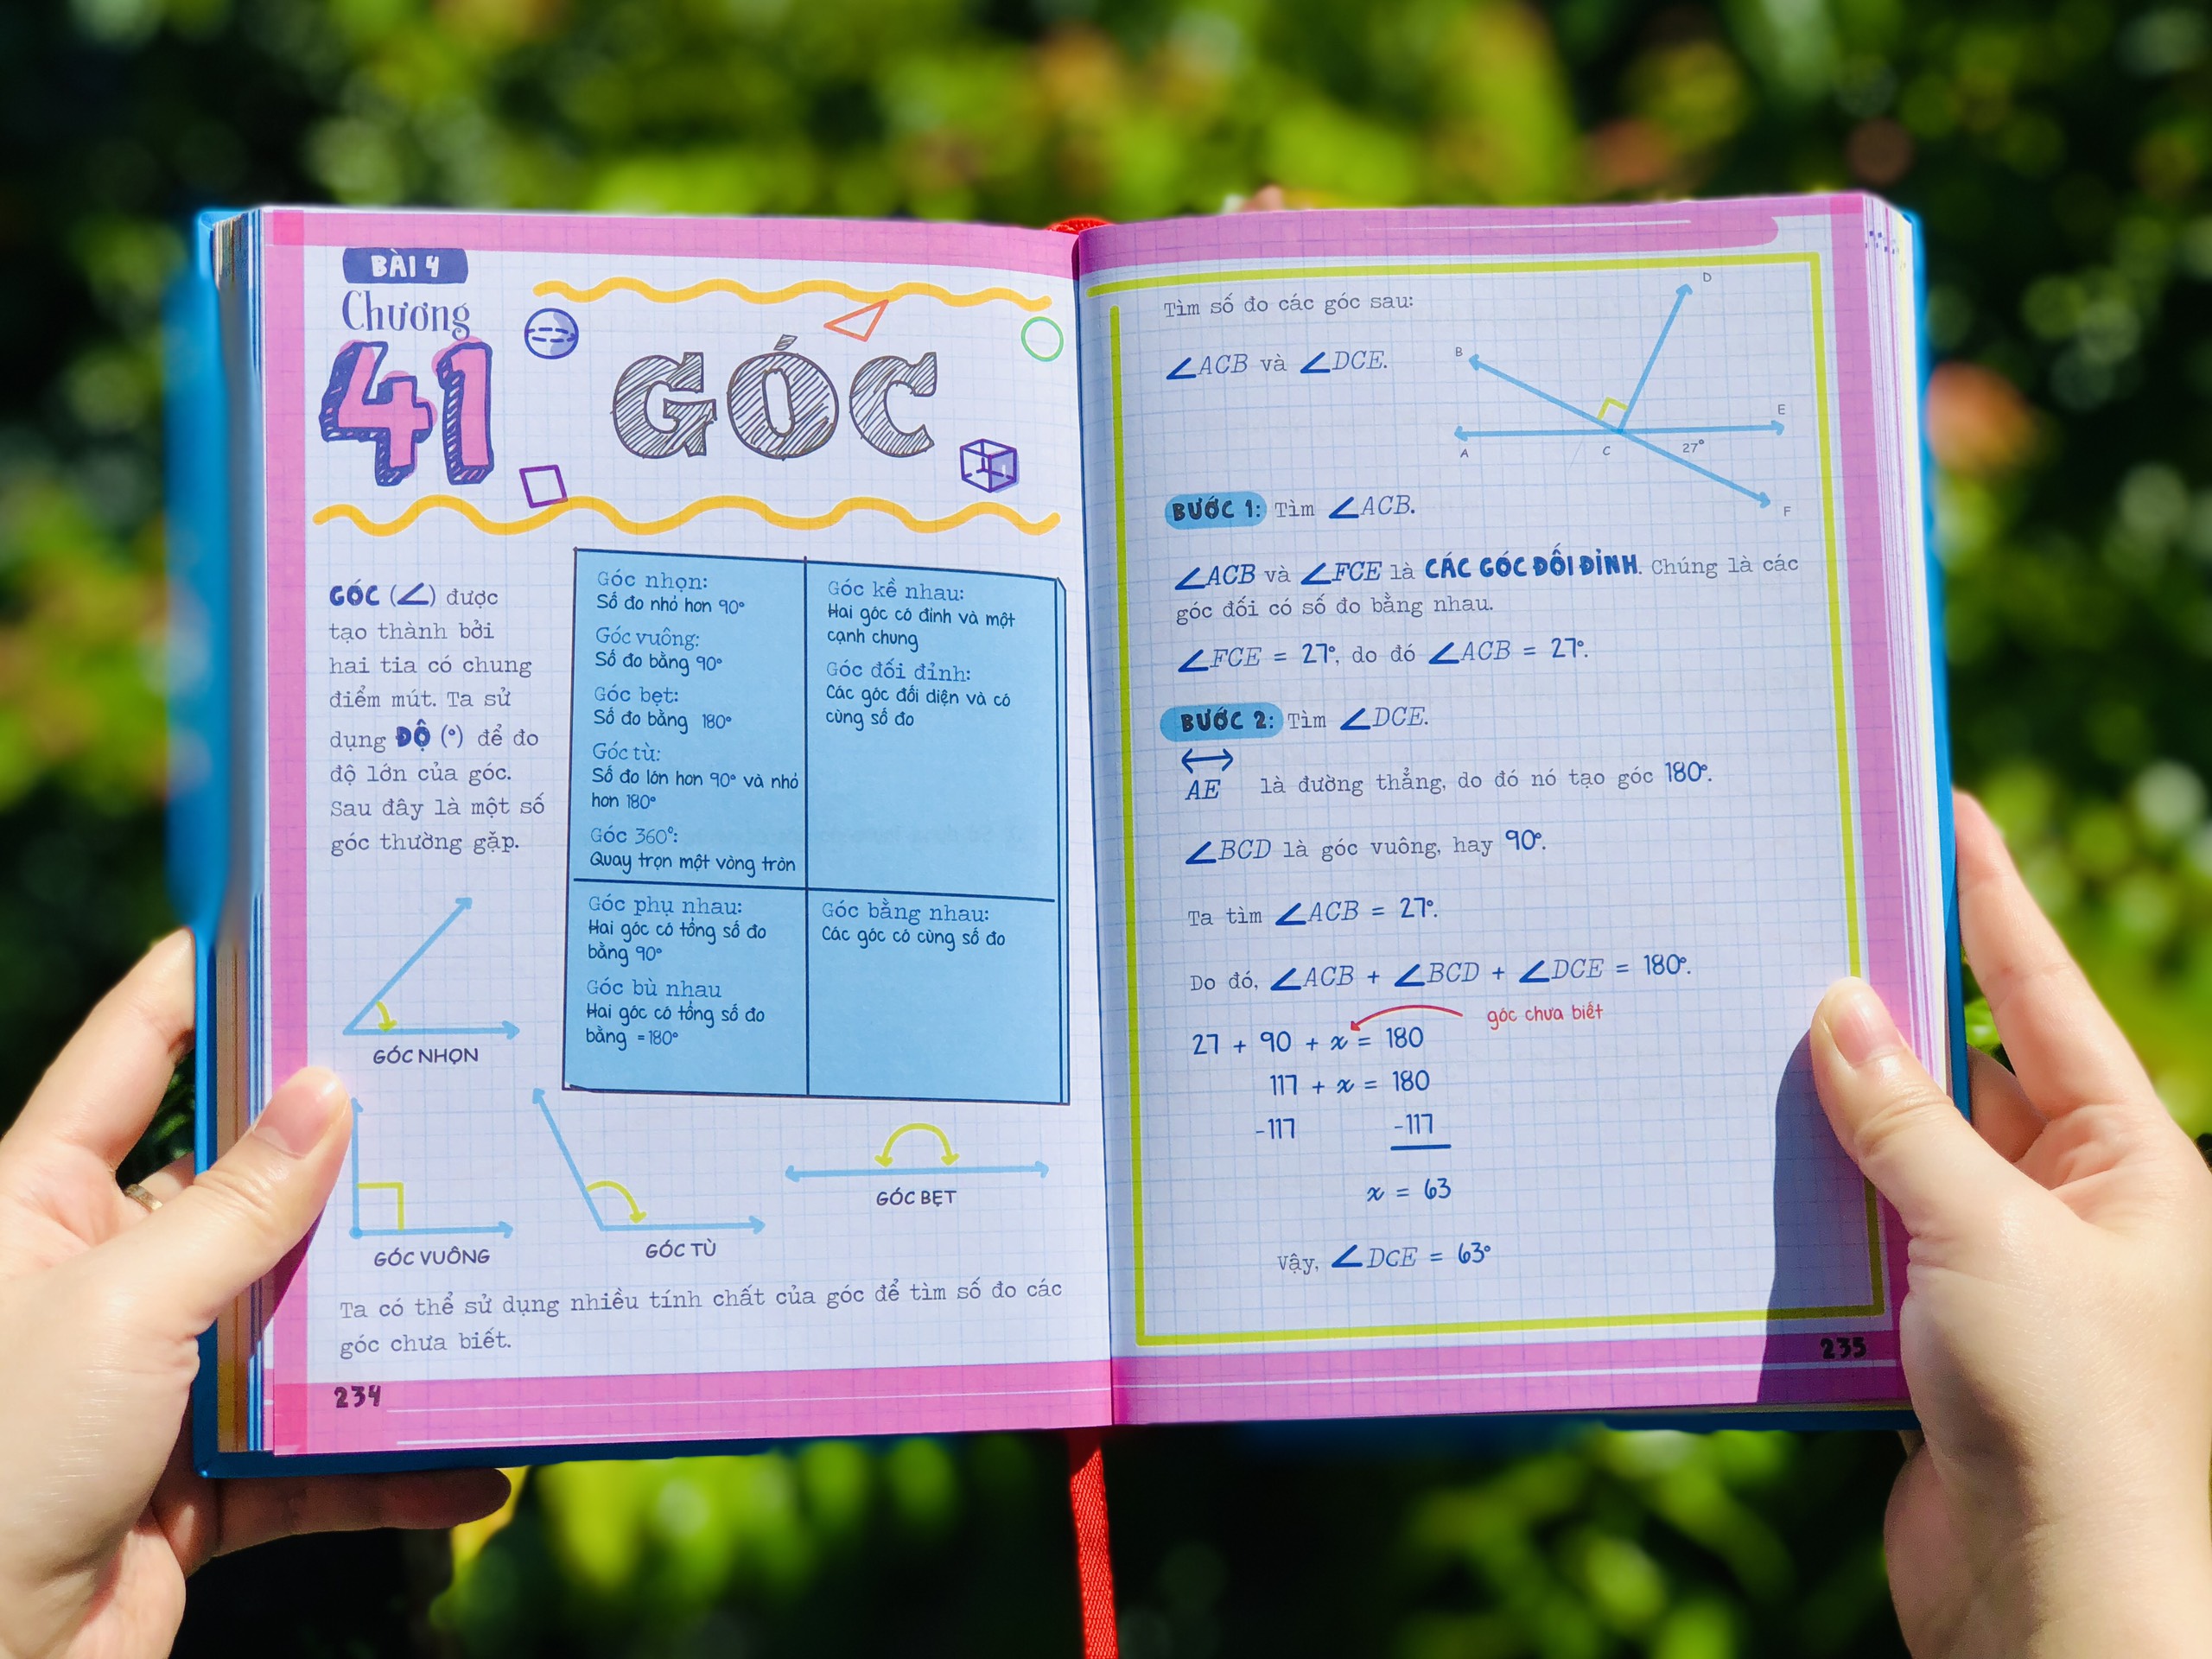 BÀI 4
Chương
41
GÓC
GÓC (∠) được
tạo thành bởi
hai tia có chung
điểm mút. Ta sử
dụng ĐỘ (°) để đo
độ lớn của góc.
Sau đây là một số
góc thường gặp.
Góc nhọn:
Số đo nhỏ hơn 90°
Góc vuông:
Số đo bằng 90°
Góc bẹt:
Số đo bằng 180°
Góc tù:
Số đo lớn hơn 90° và nhỏ
hơn 180°
Góc 360°:
Quay trọn một vòng tròn
Góc kề nhau:
Hai góc có đỉnh và một
cạnh chung
Góc đối đỉnh:
Các góc đối diện và có
cùng số đo
Góc phụ nhau:
Hai góc có tổng số đo
bằng 90°
Góc bù nhau
Hai góc có tổng số đo
bằng =180°
Góc bằng nhau:
Các góc có cùng số đo
GÓC NHỌN
GÓC VUÔNG
GÓC TÙ
GÓC BẸT
Ta có thể sử dụng nhiều tính chất của góc để tìm số đo các
góc chưa biết.
234
Tìm số đo các góc sau:
∠ACB và ∠DCE.
D
B
E
A
C
27°
F
BƯỚC 1: Tìm ∠ACB.
∠ACB và ∠FCE là CÁC GÓC ĐỐI ĐỈNH. Chúng là các
góc đối có số đo bằng nhau.
∠FCE = 27°, do đó ∠ACB = 27°.
BƯỚC 2: Tìm ∠DCE.
AE là đường thẳng, do đó nó tạo góc 180°.
∠BCD là góc vuông, hay 90°.
Ta tìm ∠ACB = 27°.
Do đó, ∠ACB + ∠BCD + ∠DCE = 180°.
góc chưa biết
27 + 90 + x = 180
117 + x = 180
-117 -117
x = 63
Vậy, ∠DCE = 63°
235